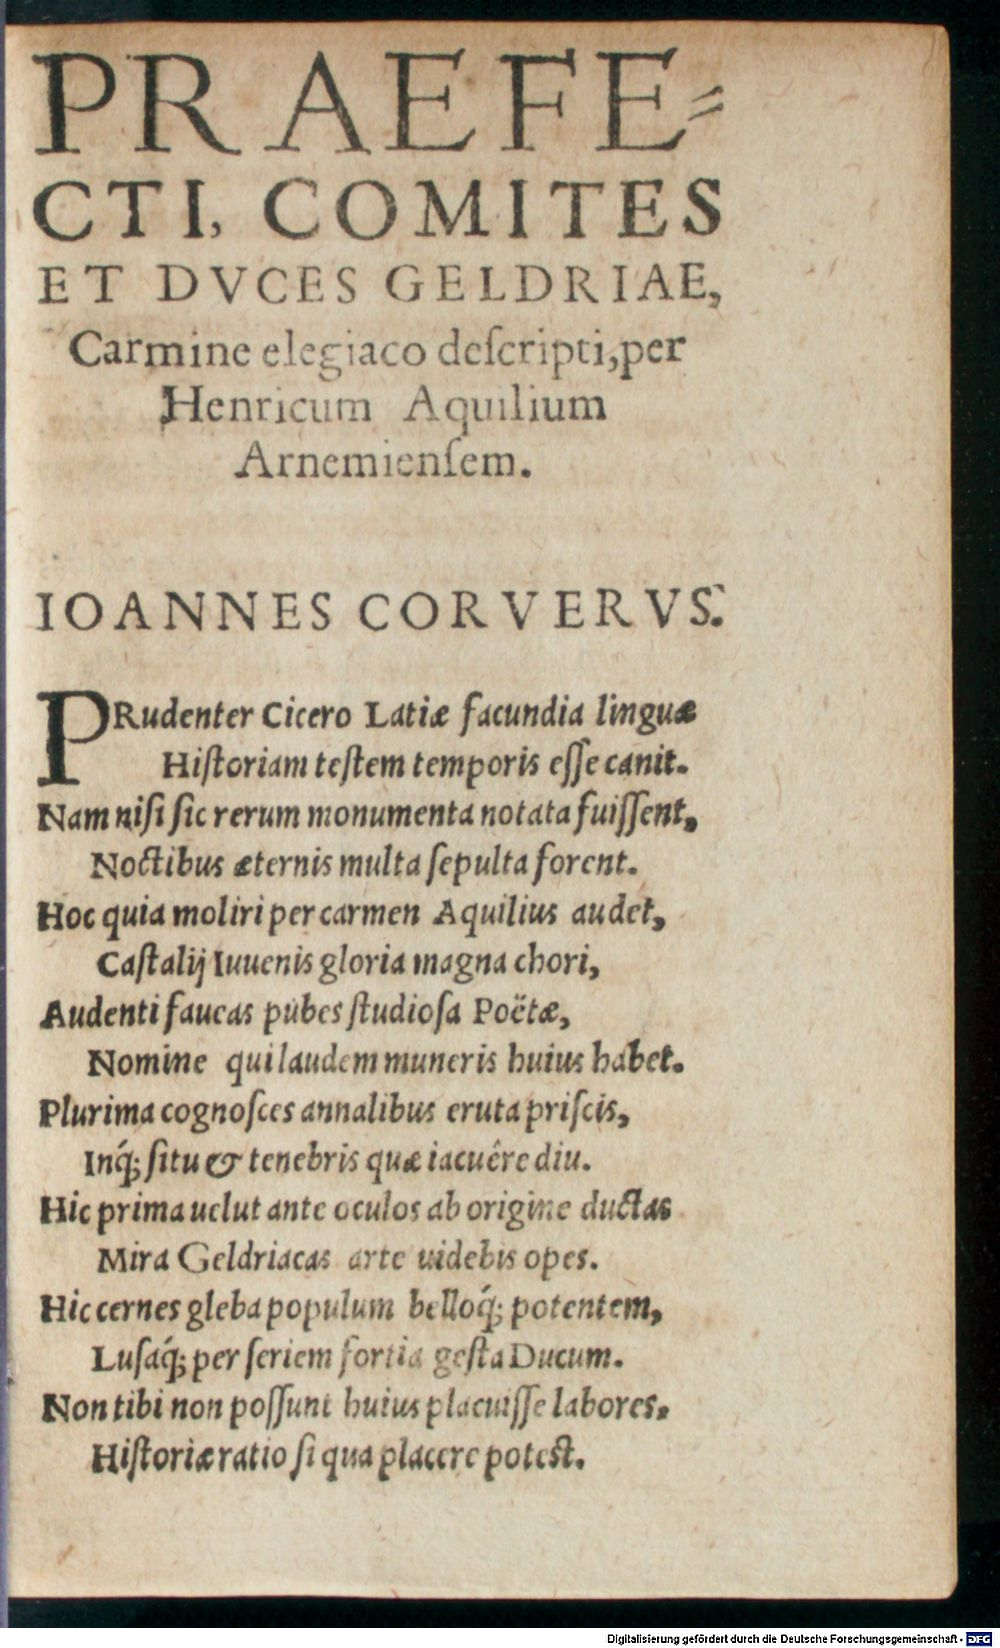 PRAEFE=
CTI, COMITES
ET DVCES GELDRIAE,
Carmine elegiaco deſcripti, per
Henricum Aquilium
Arnemienſem.
IOANNES CORVERVS.
PRudenter Cicero Latiæ facundia linguæ
Hiſtoriam teſtem temporis eſſe canit.
Nam niſi ſic rerum monumenta notata fuiſſent,
Noctibus æternis multa ſepulta forent.
Hoc quia moliri per carmen Aquilius audet,
Caſtalij Iuuenis gloria magna chori,
Audenti faueas pubes ſtudioſa Poëtæ,
Nomine qui laudem muneris huius habet.
Plurima cognoſces annalibus eruta priſcis,
Inq́; ſitu & tenebris quæ iacuêre diu.
Hic prima uelut ante oculos ab origine ductas
Mira Geldriacas arte uidebis opes.
Hic cernes gleba populum belloq́; potentem,
Luſaq́; per ſeriem fortia geſta Ducum.
Non tibi non poſſunt huius placuiſſe labores.
Hiſtoriæ ratio ſi qua placere poteſt.
Digitalisierung gefördert durch die Deutsche Forschungsgemeinschaft - DFG